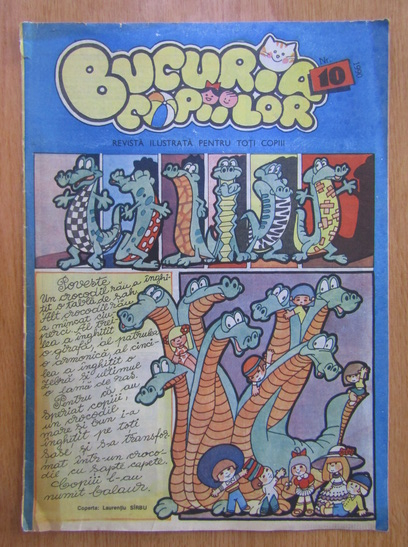 BUCURIA
COPIILOR
Nr. 10 1990
REVISTĂ ILUSTRATĂ PENTRU TOȚI COPIII
Poveste
Un crocodil rău a înghi-
țit o tablă de șah.
Alt crocodil rău
a mîncat ciu-
perci, al trei-
lea a înghițit
o girafă, al patrulea
o armonică, al cinci-
lea a înghițit o
zebră și ultimul
o lamă de ras.
Pentru că au
speriat copiii,
un crocodil
mare și bun i-a
înghițit pe toți
șase și s-a transfor
mat într-un croco-
dil cu șapte capete.
Copiii l-au
numit balaur.
Coperta: Laurențiu SÎRBU